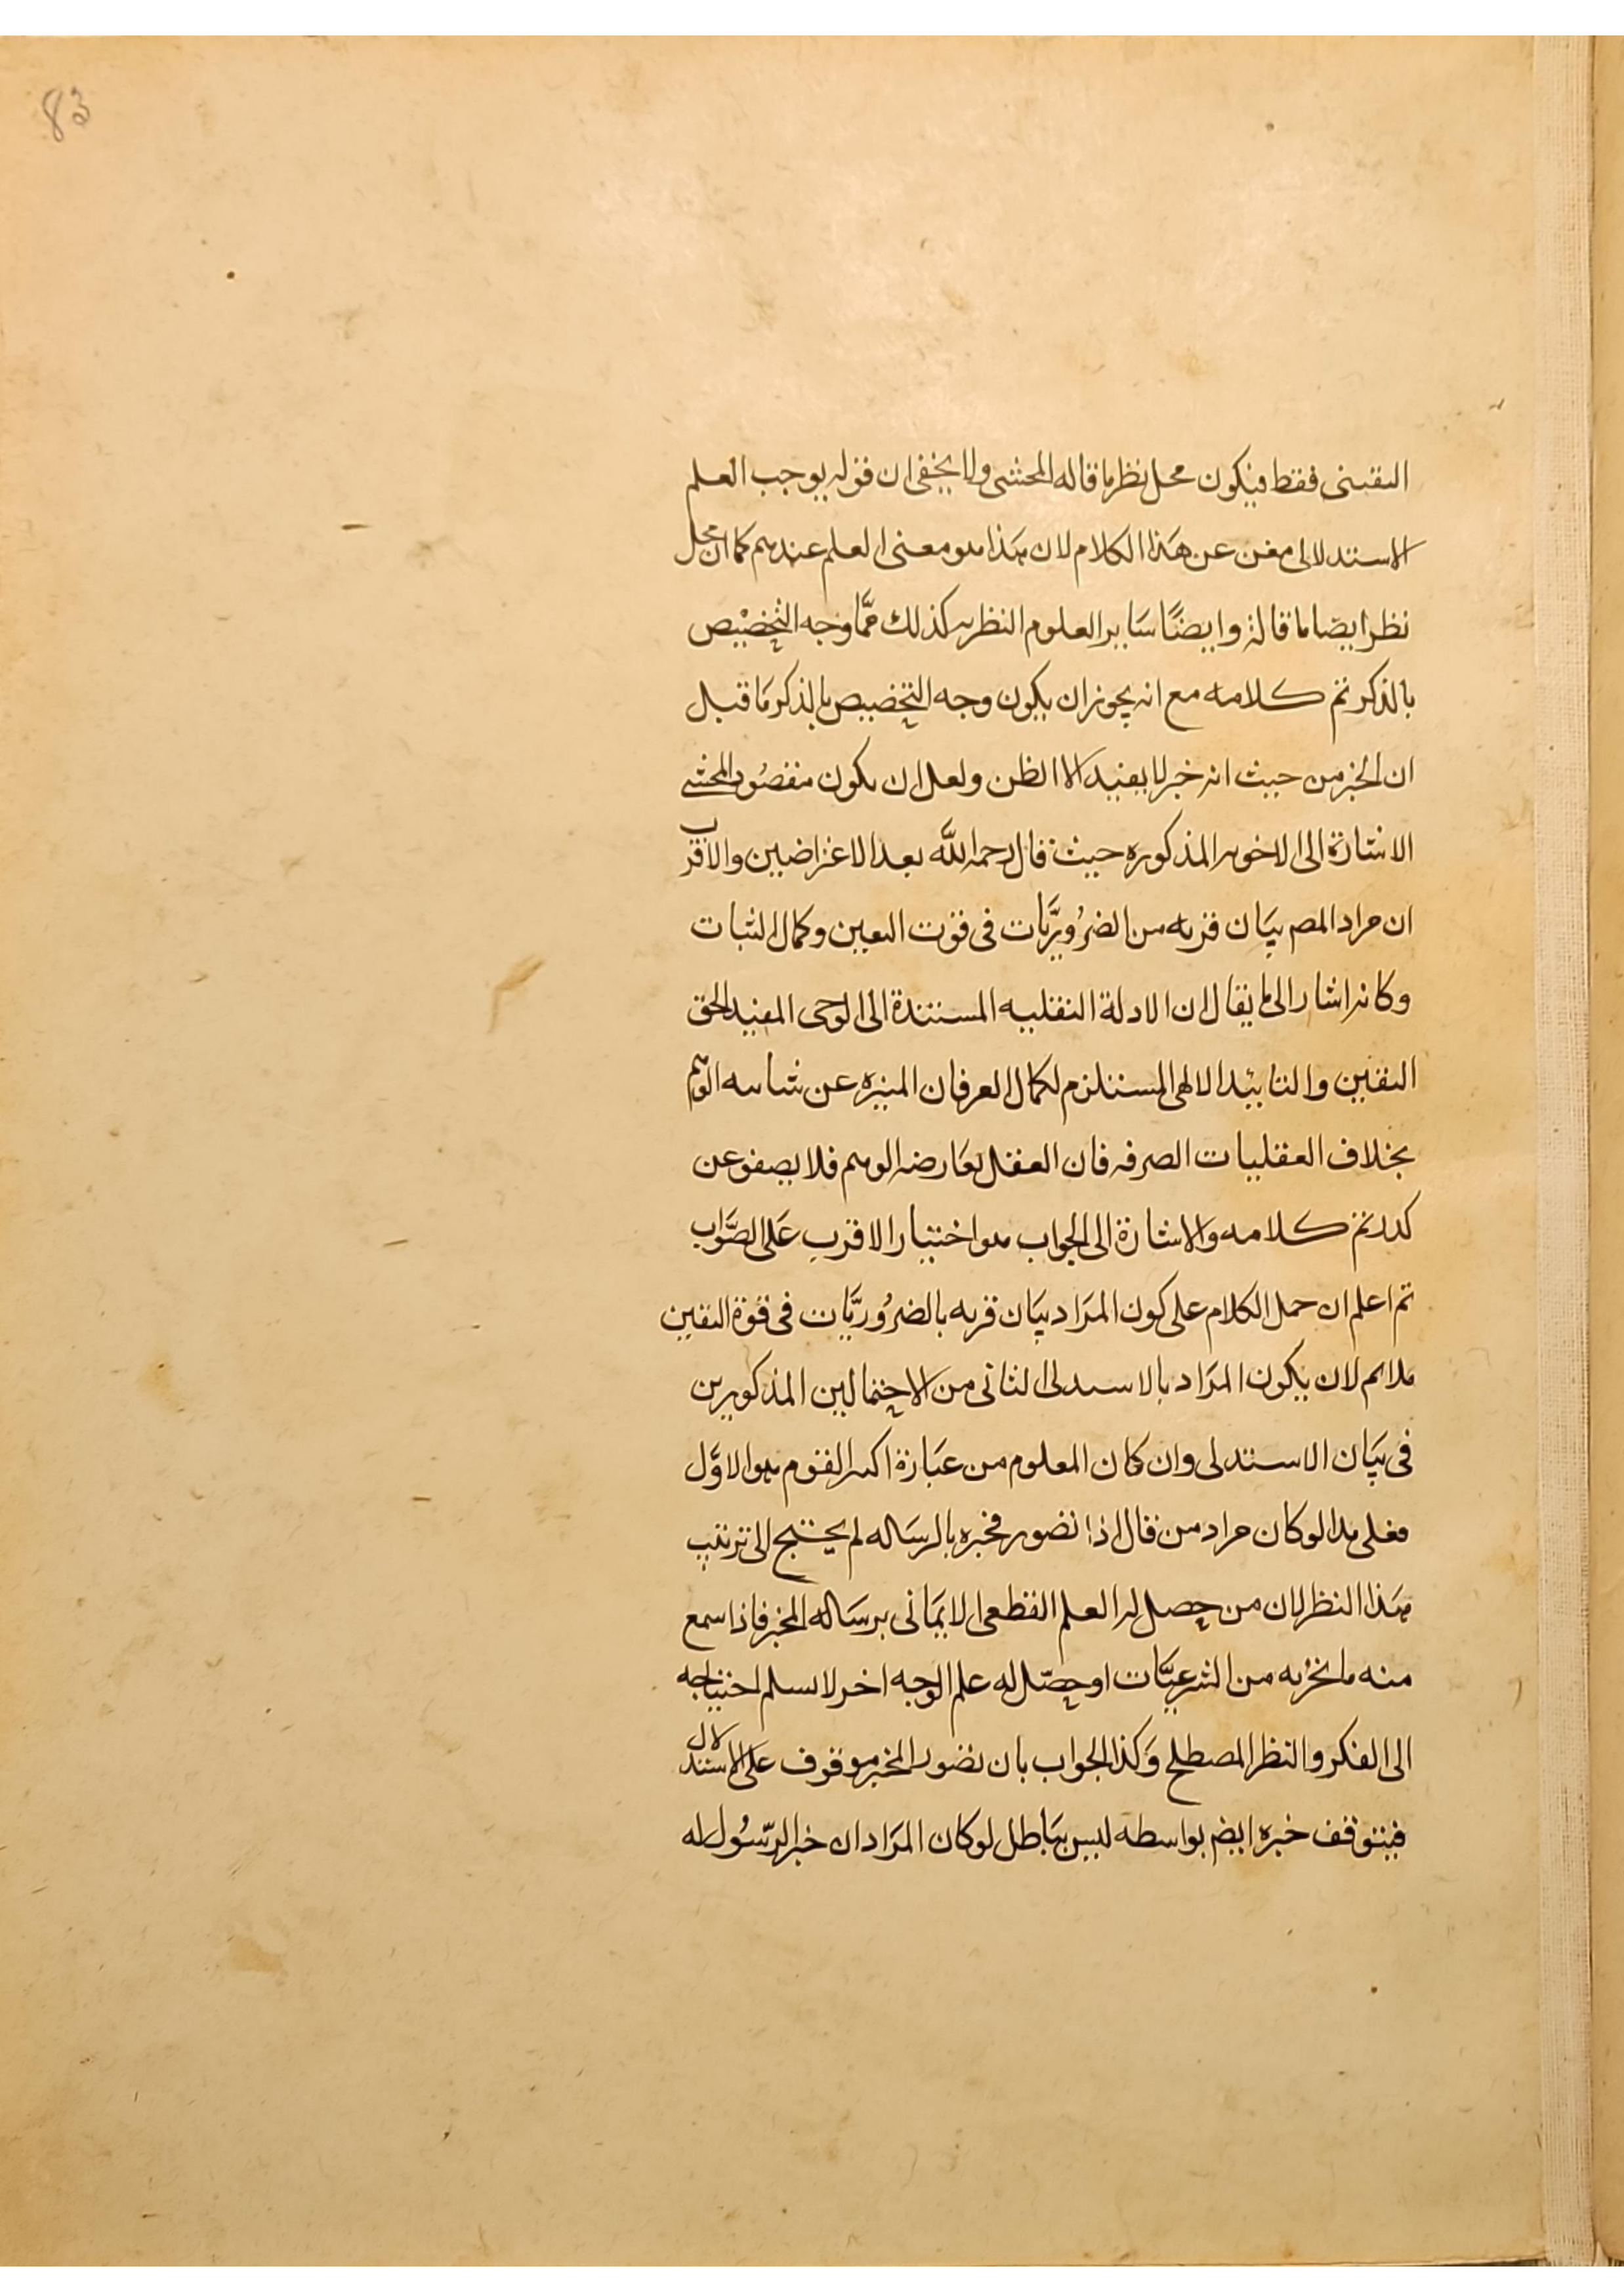 83
اليقيني فقط فيكون محل نظر ما قاله المحشى ولا يخفى ان قوله يوجب العلم
الاستدلالى مغن عن هذا الكلام لان هذا هو معنى العلم عندهم كما ان محل
نظر ايضا ما قاله وايضًا ساير العلوم النظريه كذلك فما وجه التخصيص
بالذكر تم كلامه مع انه يجوز ان يكون وجه التخصيص بالذكر ما قيل
ان الخبر من حيث انه خبر لا يفيد الا الظن ولعل ان يكون مقصود المحشى
الاشارة الى الاخوبه المذكوره حيث قال رحمه الله بعد الاعتراضين والاقرب
ان مراد المصـ بيان قربه من الضروريات في قوت اليقين وكمال الثبات
وكانه اشار الى ما يقال ان الادلة النقليه المستندة الى الوحى المفيد لحق
اليقين والتائيد الالهى المستلزم لكمال العرفان المنزه عن شايبه الوهم
بخلاف العقليات الصرفه فان العقل يعارضه الوهم فلا يصفو عن
كدر تم كلامه والاشارة الى الجواب هو اختيار الاقرب على الصواب
ثم اعلم ان حمل الكلام على كون المراد بيان قربه بالضروريات في قوة اليقين
ملايم لان يكون المراد بالاستدلى الثانى من الاحتمالين المذكورين
في بيان الاستدلى وان كان المعلوم من عبارة اكثر القوم هو الاول
فعلى هذا لو كان مراد من قال اذا تصور مخبره بالرساله لم يحتج الى ترتيب
هذا النظر لان من حصل له العلم القطعى الايمانى برساله المخبر فاذا سمع
منه ما يخبر به من الشرعيات او حصل له علم الوجه اخر لا نسلم احتياجه
الى الفكر والنظر المصطلح وكذا الجواب بان تصور المخبر موقوف على الاستدلال
فيتوقف خبره ايضـ بواسطه ليس بباطل لو كان المراد ان خبر الرسول له